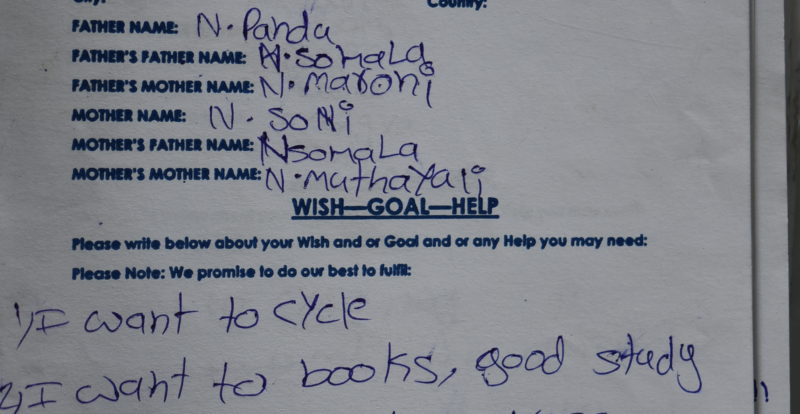 Country:
FATHER NAME: N. Panda
FATHER'S FATHER NAME: N. SOMaLa
FATHER'S MOTHER NAME: N. maroni
MOTHER NAME: N. SONi
MOTHER'S FATHER NAME: NSOMaLa
MOTHER'S MOTHER NAME: N. muthayali
WISH—GOAL—HELP
Please write below about your Wish and or Goal and or any Help you may need:
Please Note: We promise to do our best to fulfil:
1, I want to cycle
2, I want to books, good study